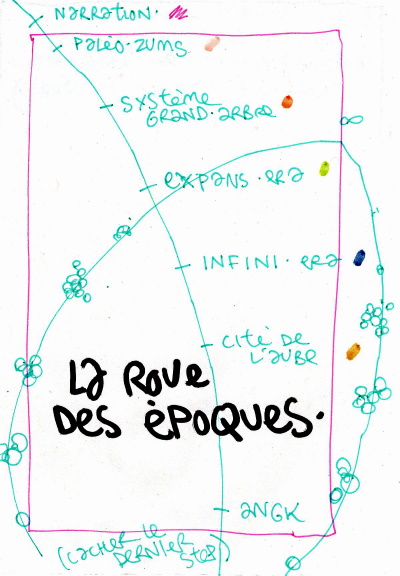 NARRATION.
PALÉO.ZUMS
SYSTÈME
GRAND.ARBRE
EXPANS.ERA
INFINI.ERA
CITÉ DE
L'AUBE
LA ROUE
DES ÉPOQUES.
ANGK
(CACHER LE
DERNIER STEP)